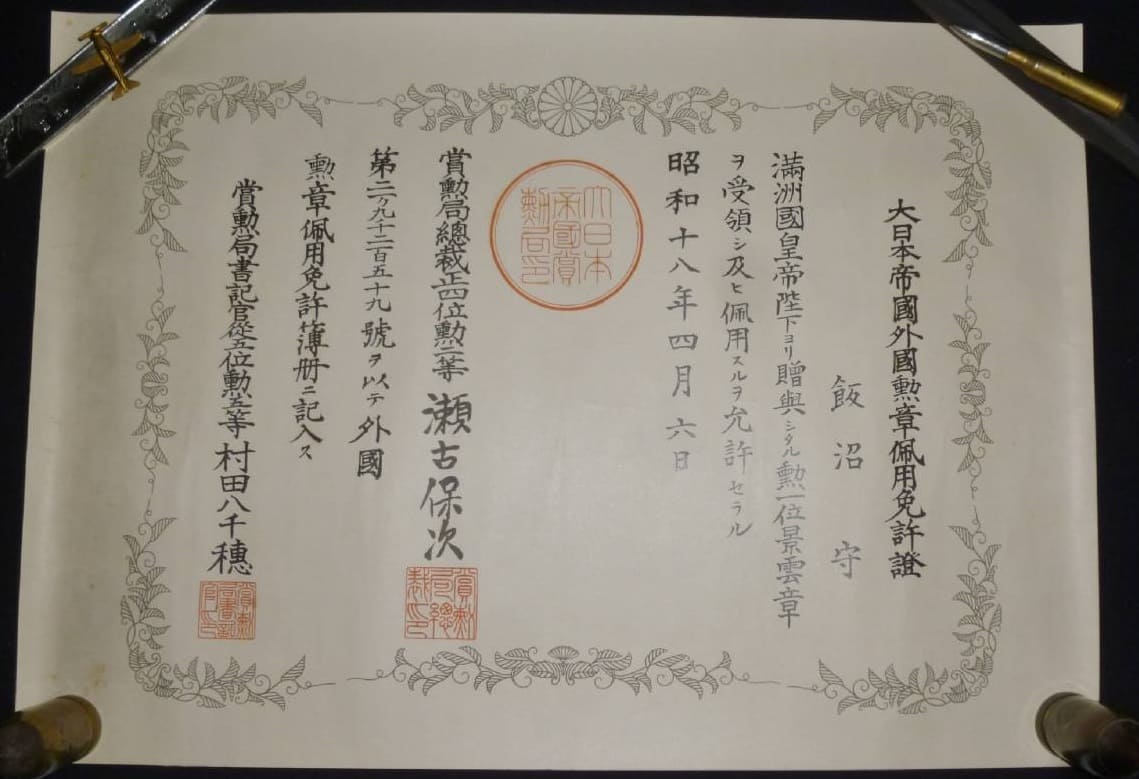 大日本帝國外國勲章佩用免許證
飯沼守
滿洲國皇帝陛下ヨリ贈與シタル勲一位景雲章
ヲ受領シ及ヒ佩用スルヲ允許セラル
昭和十八年四月六日
大日本
帝國賞
勲局印
賞勲局總裁正四位勲二等瀬古保次
賞勲
局總
裁印
第二九千二百五十九號ヲ以テ外國
勲章佩用免許簿册ニ記入ス
賞勲局書記官從五位勲五等村田八千穗
賞勲
局書記
官印